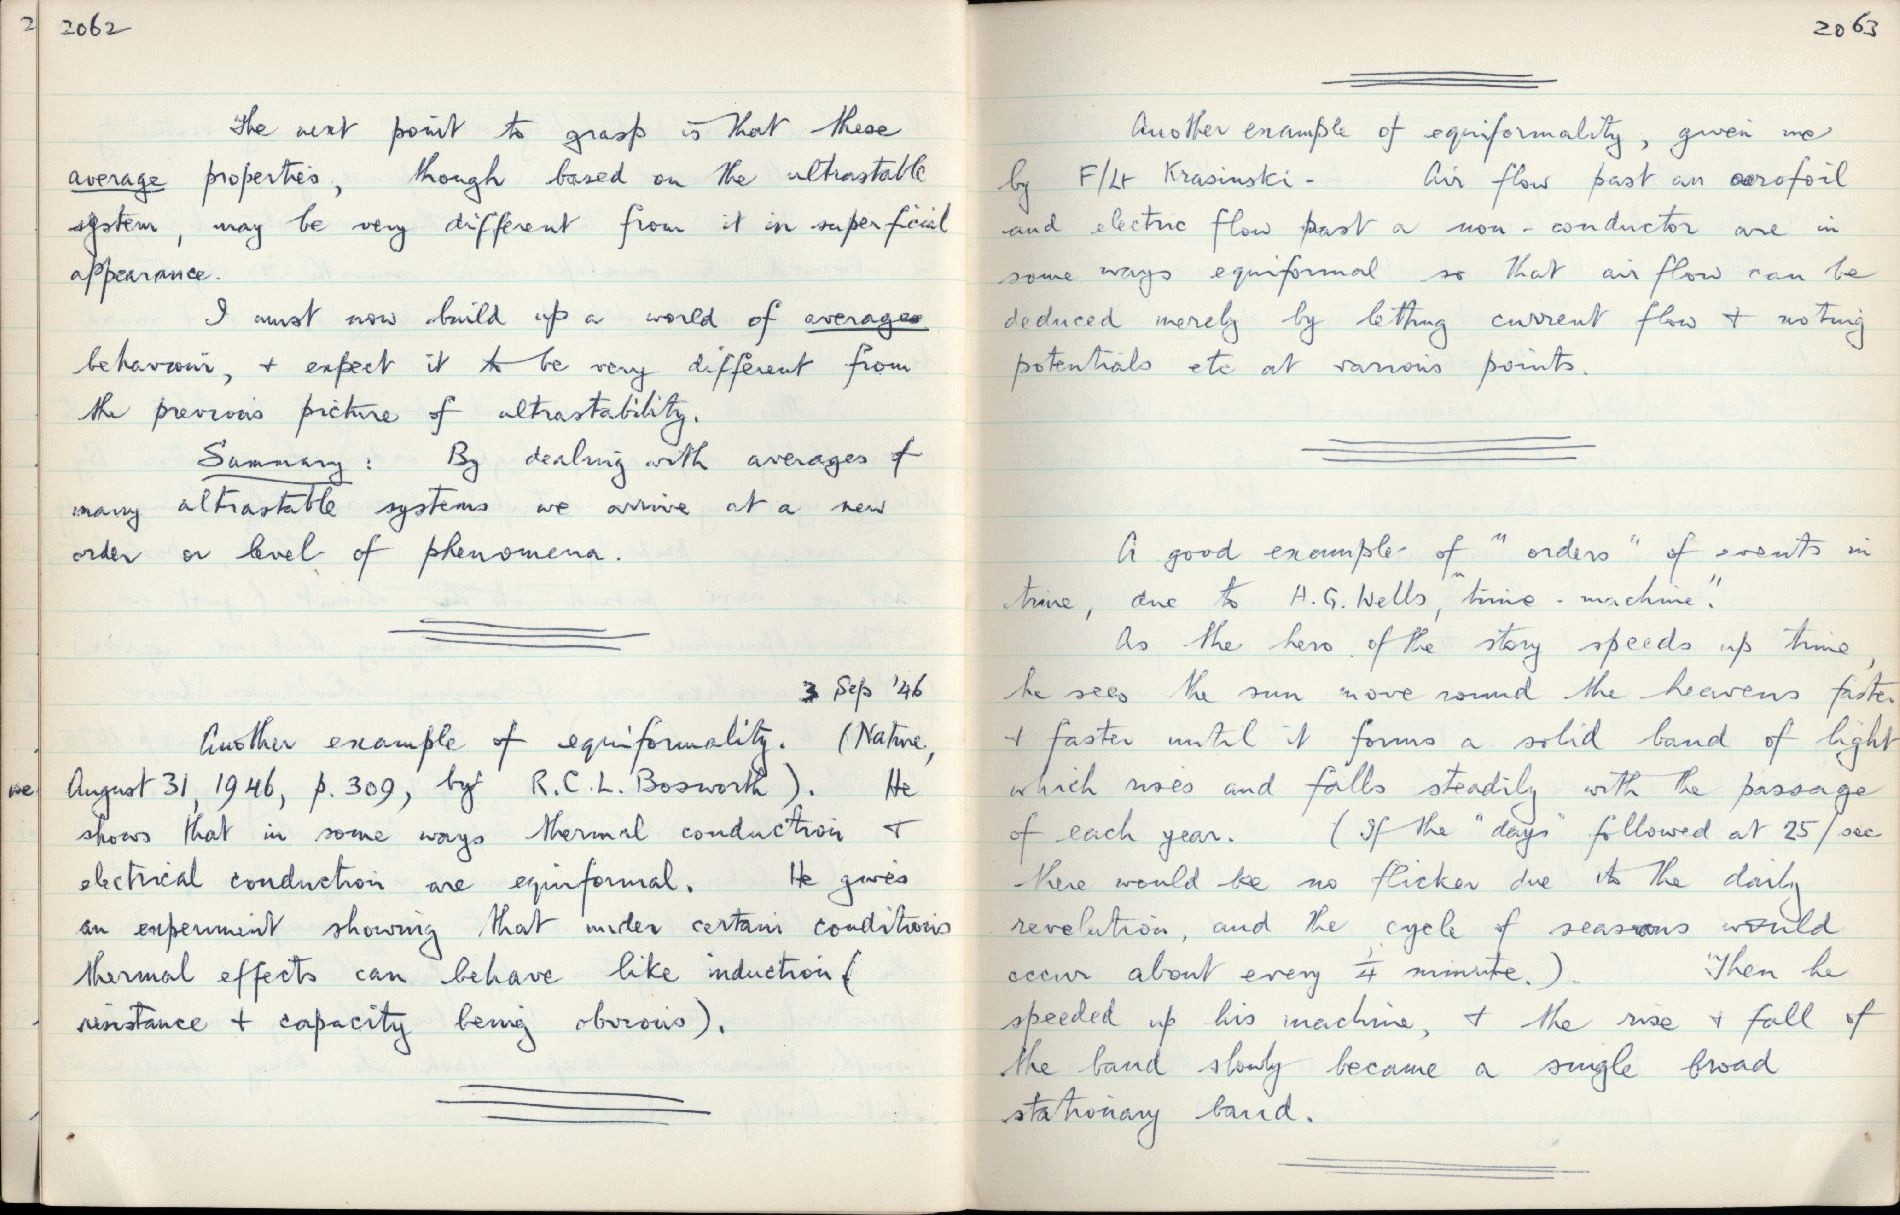 2062
The next point to grasp is that these
average properties, though based on the ultrastable
system, may be very different from it in superficial
appearance.
I must now build up a world of average
behaviour, + expect it to be very different from
the previous picture of ultrastability.
Summary: By dealing with averages of
many ultrastable systems we arrive at a new
order or level of phenomena.
3 Sep '46
Another example of equiformality. (Nature,
August 31, 1946, p. 309, by R.C.L. Bosworth). He
shows that in some ways thermal conduction +
electrical conduction are equiformal. He gives
an experiment showing that under certain conditions
thermal effects can behave like induction (
resistance + capacity being obvious).
2063
Another example of equiformality, given me
by F/Lt Krasinski - Air flow past an aerofoil
and electric flow past a non-conductor are in
some ways equiformal so that air flow can be
deduced merely by letting current flow + noting
potentials etc at various points.
A good example of "orders" of events in
time, due to H.G. Wells, "time-machine".
As the hero of the story speeds up time,
he sees the sun move round the heavens faster
+ faster until it forms a solid band of light
which rises and falls steadily with the passage
of each year. (If the "days" followed at 25/sec
there would be no flicker due to the daily
revolution, and the cycle of seasons would
occur about every ¼ minute.). Then he
speeded up his machine, + the rise + fall of
the band slowly became a single broad
stationary band.